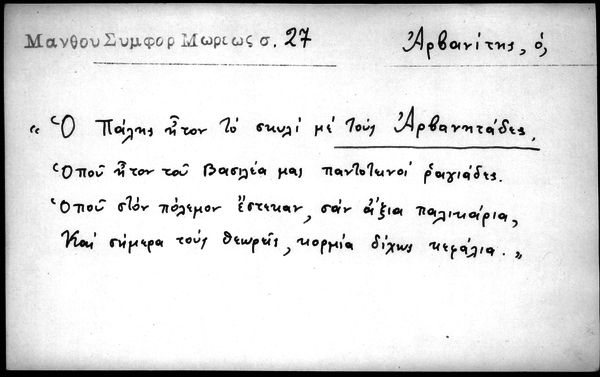 Μανθου Συμφορ Μωρεως σ. 27
Ἀρβανίτης, ὁ,
« Ὁ Πάλης ἦτον τὸ σκυλί μέ τούς Ἀρβανητάδες,
Ὁποῦ ἦτον τοῦ Βασιλέα μας παντοτινοί ῥαγιάδες.
Ὁποῦ στόν πόλεμον ἔστεκαν, σάν ἄξια παλικάρια,
Καί σήμερα τούς θεωρεῖς, κορμία δίχως κεφάλια. »